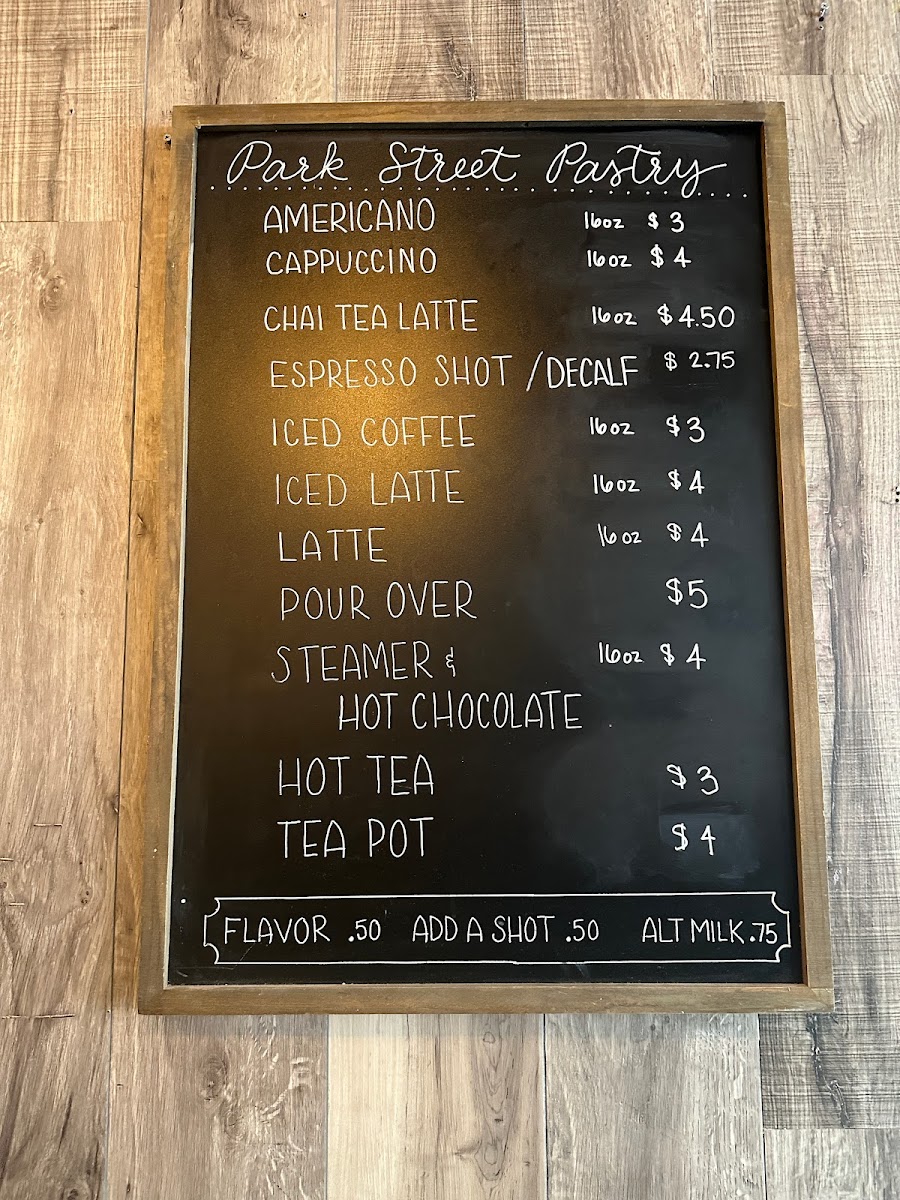 Park Street Pastry
AMERICANO 16oz $3
CAPPUCCINO 16oz $4
CHAI TEA LATTE 16oz $4.50
ESPRESSO SHOT /DECALF $2.75
ICED COFFEE 16oz $3
ICED LATTE 16oz $4
LATTE 16oz $4
POUR OVER $5
STEAMER & 16oz $4
HOT CHOCOLATE
HOT TEA $3
TEA POT $4
FLAVOR .50 ADD A SHOT .50 ALT MILK .75